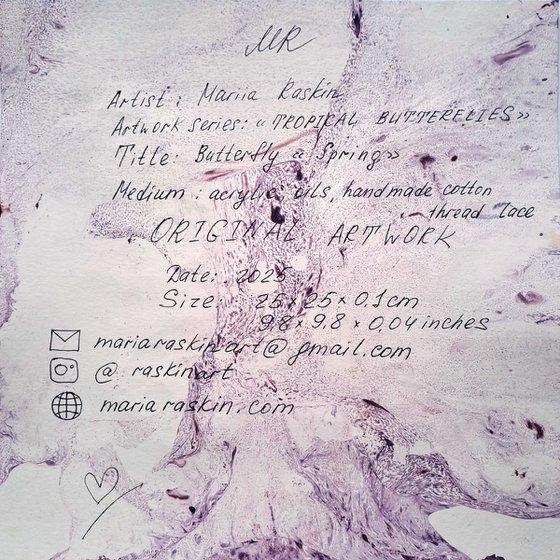 MR
Artist: Mariia Raskin
Artwork series: «TROPICAL BUTTERFLIES»
Title: Butterfly «Spring»
Medium: acrylic, oils, handmade cotton
thread lace
ORIGINAL ARTWORK
Date: 2025
Size: 25 × 25 × 0,1 cm
9,8 × 9,8 × 0,04 inches
mariaraskin.art@gmail.com
@raskinart
mariaraskin.com